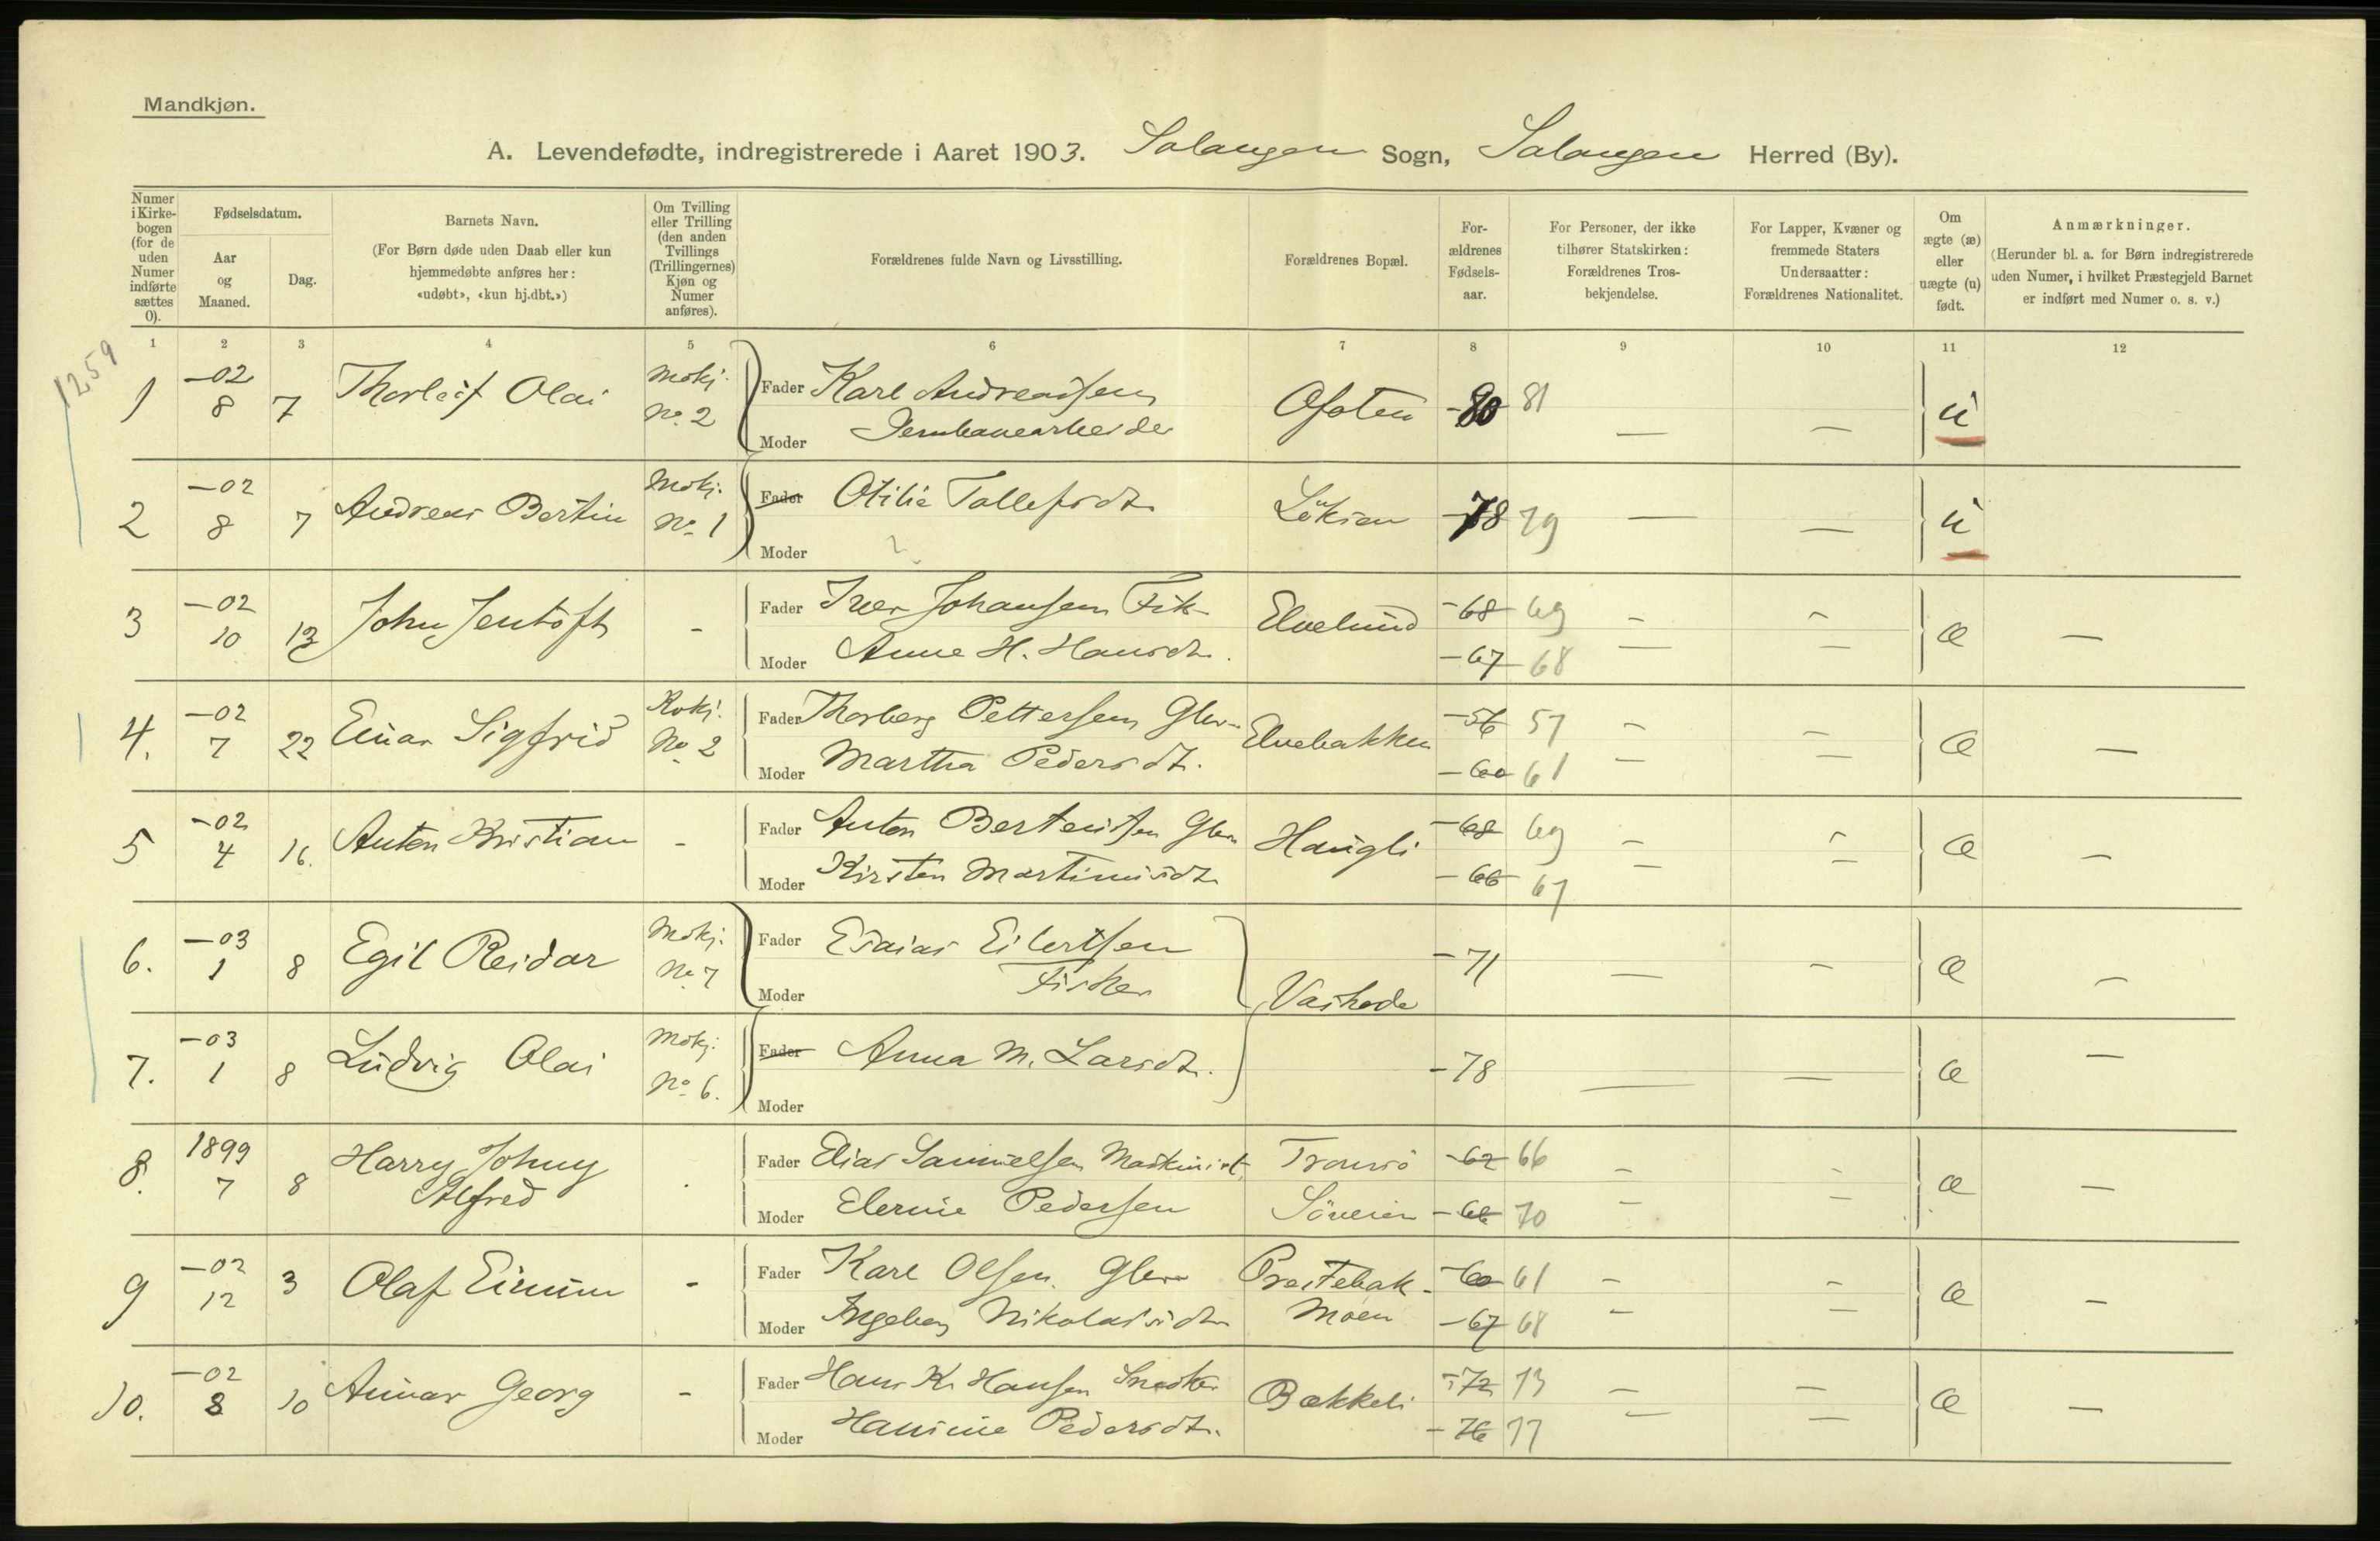 Mandkjøn.
A. Levendefødte, indregistrerede i Aaret 1903. Salangen Sogn, Salangen Herred (By).
Numer i Kirkebogen (for de uden Numer indførte sættes 0).
Fødselsdatum.
Aar og Maaned.
Dag.
Barnets Navn.
(For Børn døde uden Daab eller kun hjemmedøbte anføres her: «udøbt», «kun hj.dbt.»)
Om Tvilling eller Trilling (den anden Tvillings (Trillingernes) Kjøn og Numer anføres).
Forældrenes fulde Navn og Livsstilling.
Forældrenes Bopæl.
Forældrenes Fødselsaar.
For Personer, der ikke tilhører Statskirken: Forældrenes Trosbekjendelse.
For Lapper, Kvæner og fremmede Staters Undersaatter: Forældrenes Nationalitet.
Om ægte (æ) eller uægte (u) født.
Anmærkninger.
(Herunder bl. a. for Børn indregistrerede uden Numer, i hvilket Præstegjeld Barnet er indført med Numer o. s. v.)
1 2 3 4 5 6 7 8 9 10 11 12
1259
1 -02 8 7 Thorleif Olai Mskj. No. 2 Fader Karl Andreassen Ofoten -80 81 — — u
Moder Jernbanearbeider
2 -02 8 7 Andreas Bertin Mskj. No. 1 Fader Otilie Tollefsdt. -78 79 — — u
Moder
3 -02 10 13 John Jentoft - Fader Iver Johansen Fisk. Elvelund -68 69 - - æ —
Moder Anne H. Hansdt. -67 68 — —
4. -02 7 22 Einar Sigfrid Kvkj. No. 2 Fader Thorberg Pettersen Gbr. Elvebakken -56 57 - - æ —
Moder Martha Pedersdt. -60 61 — —
5 -02 4 16. Anton Kristian - Fader Anton Berteussen Gbr. Haugli -68 69 - - æ —
Moder Kirsten Martinusdt. -66 67 — —
6. -03 1 8 Egil Reidar Mskj. No. 7 Fader Esaias Eilertsen -71 — - æ —
Moder Fisker Vashode
7. -03 1 8 Ludvig Olai Mskj. No. 6. Fader Anna M. Larsdt. -78 — — æ —
Moder
8. 1899 7 8 Harry Johny Alfred . Fader Elias Samuelsen Maskinist Tromsö -62 66 - - æ —
Moder Elerine Pedersen Söveien -66 70 - -
9 -02 12 3 Olaf Einum - Fader Karl Olsen Gbr. Prestebakmoen -60 61 - - æ —
Moder Ingeborg Nikolaisdt. -67 68 - —
10. -02 8 10 Annar Georg - Fader Hans K. Hansen Snedker Bækkeli -72 73 — — æ —
Moder Hansine Pedersdt. -76 77 — —